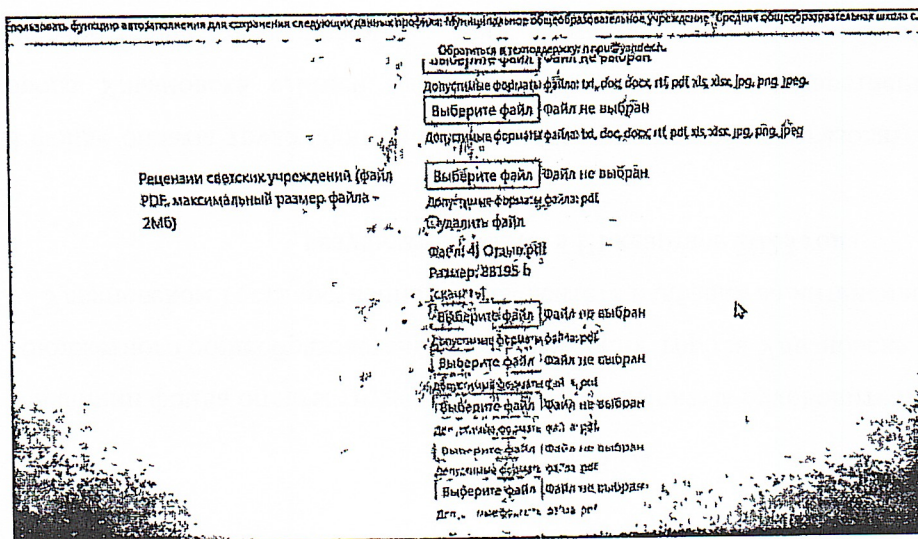 спользовать функцию автозаполнения для сохранения следующих данных профиля: Муниципальное общеобразовательное учреждение "Средняя общеобразовательная школа
Обратиться в техподдержку:
Выберите файл Файл не выбран
Допустимые форматы файла: txt, doc, docx, rtf, pdf, xls, xlsx, jpg, png, jpeg.
Выберите файл Файл не выбран
Допустимые форматы файла: txt, doc, docx, rtf, pdf, xls, xlsx, jpg, png, jpeg
Рецензии светских учреждений (файл
PDF, максимальный размер файла -
2Мб)
Выберите файл Файл не выбран
Допустимые форматы файла: pdf
удалить файл
Файл: 4) Отзыв.pdf
Размер: 88195 b
[скачать]
Выберите файл Файл не выбран
Допустимые форматы файла: pdf
Выберите файл Файл не выбран
Допустимые форматы файла: pdf
Выберите файл Файл не выбран
Допустимые форматы файла: pdf
Выберите файл Файл не выбран
Допустимые форматы файла: pdf
Выберите файл Файл не выбран
файла pdf